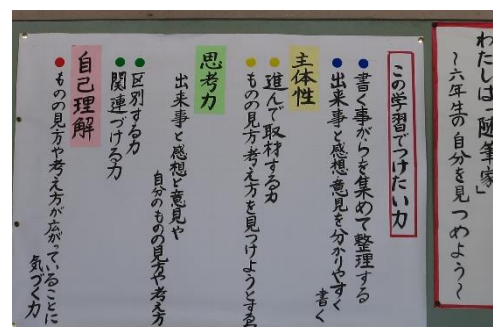 わたしは「随筆家」
～六年生の自分を見つめよう～
この学習でつけたい力
書く事がらを集めて整理する
出来事と感想意見を分かりやすく
書く
主体性
進んで取材する力
ものの見方考え方を見つけようとする
思考力
出来事と感想と意見や
自分のものの見方や考え方
区別する力
関連づける力
自己理解
ものの見方や考え方が広がっていることに
気づく力